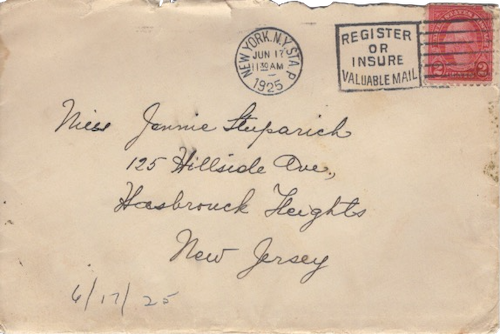 NEW YORK, N.Y. STA. P
JUN 17
11 30 AM
1925
REGISTER
OR
INSURE
VALUABLE MAIL
Miss Jennie Stuparich
125 Hillside Ave.,
Hasbrouck Heights
New Jersey
6/17/25